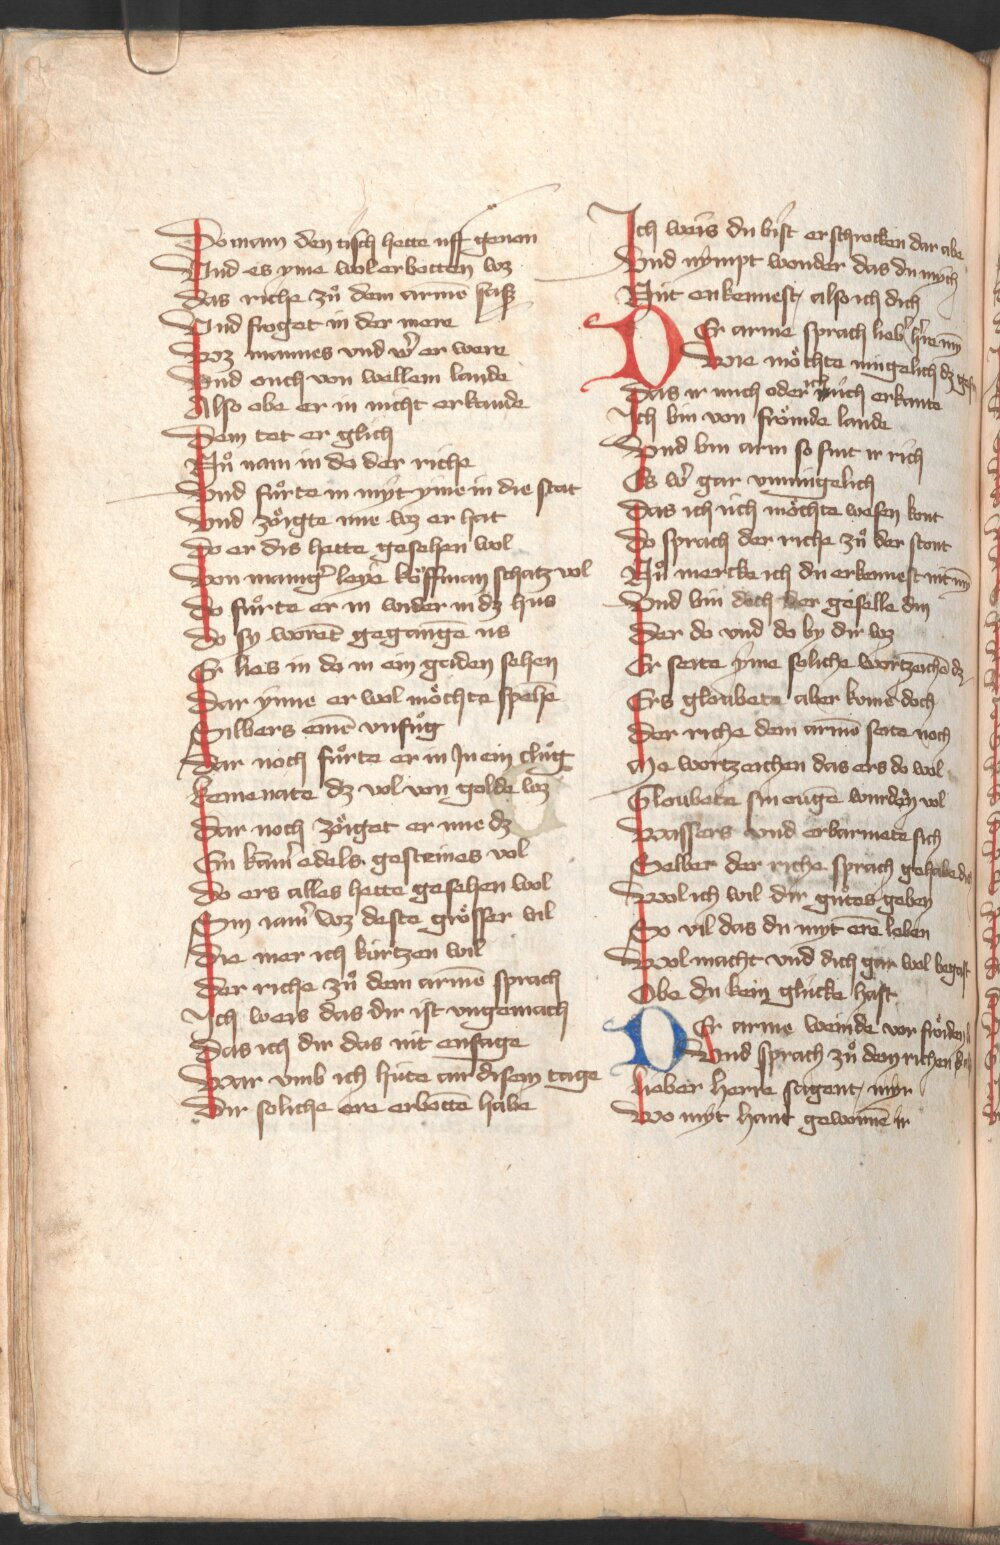 Do man den tisch hette uff genon
Und es yme wol erbotten wz
Das riche zů dem armē sasz
Und froget in der mere
Wz mannes vnd wˀ er were
Und ouch von wellem lande
Also obe er in nicht erkande
Dem tet er glich
Nů nam in do der riche
Vnd fůrte in myt yme in die stat
Vnd zöigte ime wz er hat
Do er dis hette gesehen wol
Von manigˀ leye köffman schatz vol
Do fůrte er in wider in dz hus
Do sy worēt gegangē us
Er lies in do in ein gaden sehen
Dar ynne er wol möchte spehē
Silbers einē vnfůg
Dar noch fůrte er in In ein clůg
kemenate dz vol von golde wz
Dar noch zöiget er ime dz
Ein kamˀ edels gesteines vol
Do ers alles hette gesehen wol
Sin iamˀ wz deste grösser vil
Die mer ich kürtzen wil
Der riche zů dem armē sprach
Ich weis das dir ist vngemach
Das ich dir das nit ensage
War vmb ich hüte an disem tage
Dir soliche ere erbottē habe
Ich weis du bist erschrocken dar abe
Vnd nympt wonder das du mych
Nüt erkennest / also ich dich
Er arme sprach liebˀ hˀre myn
Wie möchte mugelich dz gesin
Das ir mich oder ich üch erkante
Ich bin von frömde lande
Vnd bin arm so sint ir rich
Es wˀ gar vnmügelich
Das ich üch möchte wesen kont
Do sprach der riche zů der stont
Nů mercke ich du erkennest nit myn
Vnd bin doch der geselle din
Der do vnd do by dir wz
Er seite yme soliche wortzeichē dz
Ers gloubete aber kume doch
Der riche dem armē seite noch
Me wortzeichen das ers do wol
Gloubete sin ougē wurden vol
Wassers vnd erbarmete sich
Selber der riche sprach gehabe dich
Wol ich wil dir gůtes geben
So vil das du myt erē leben
Wol macht vnd dich gar wol begast
Obe du kein glücke hast
Er arme weinde vor fröiden
Vnd sprach zů dem richen
Lieber herre sagent / myr
Wo myt hant gewonnē ir